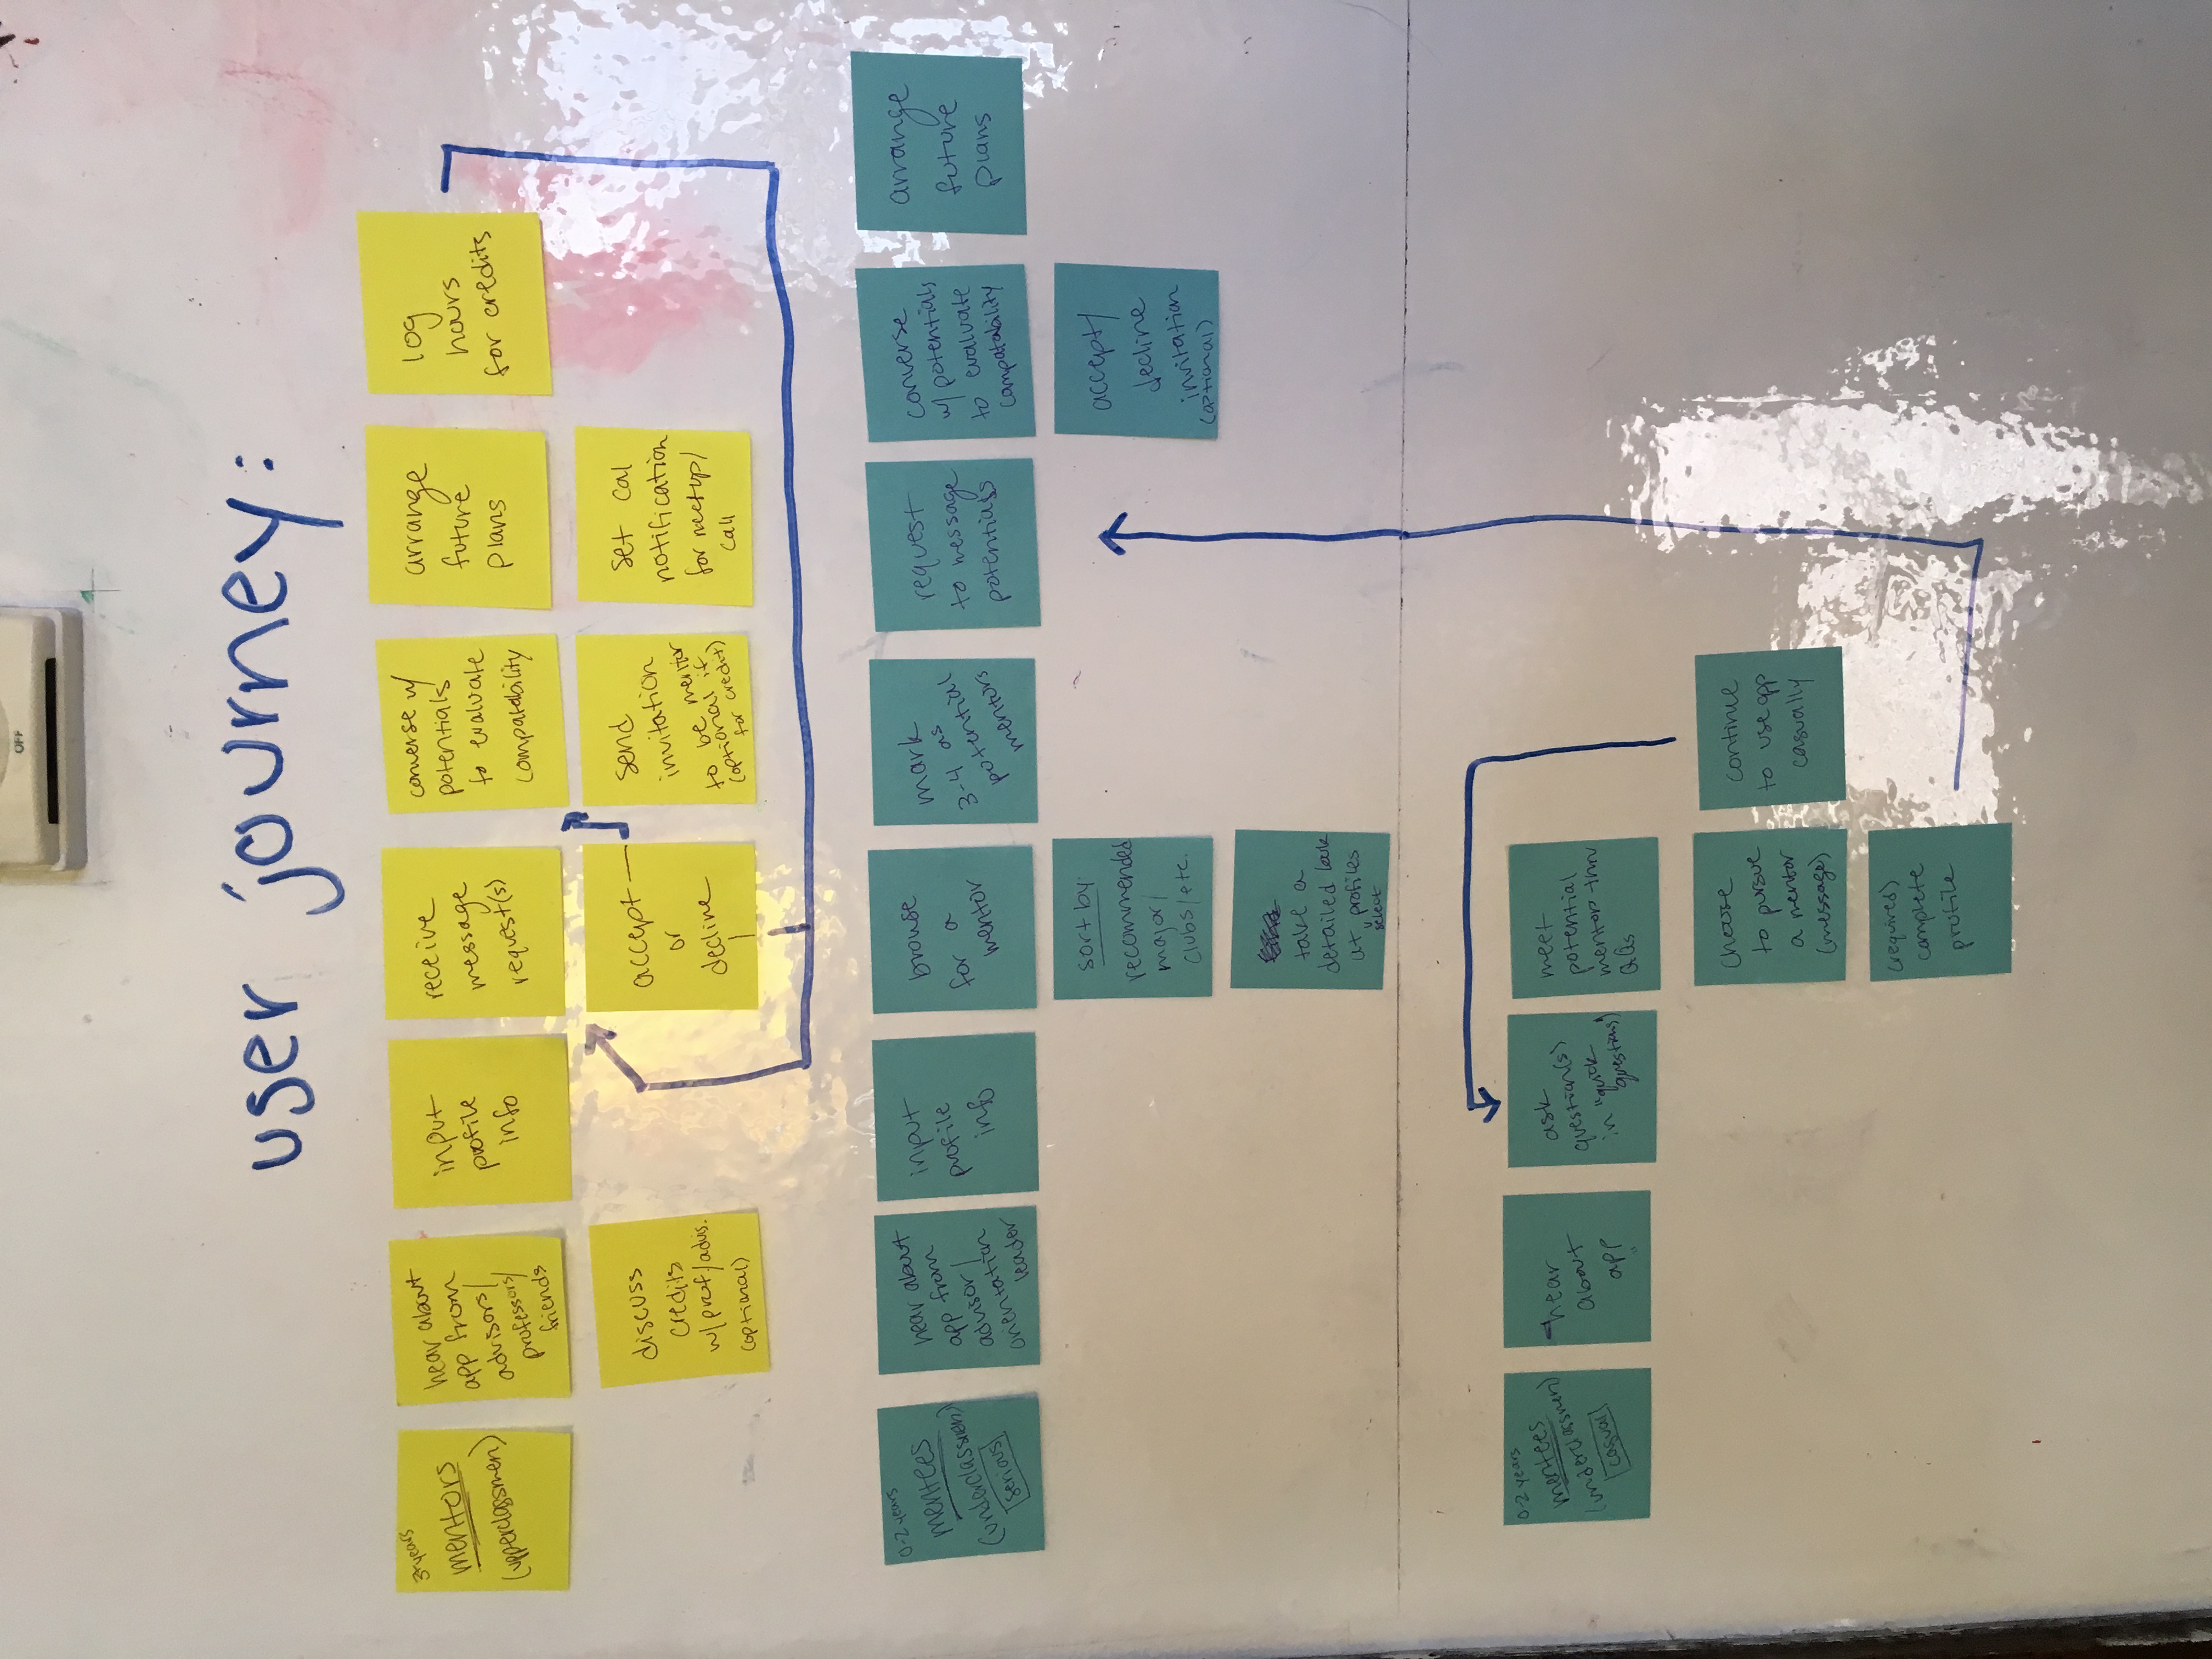 OFF
user journey:
3+ years
mentors
(upperclassmen)
hear about
app from
advisors/
professors/
friends
input
profile
info
receive
message
request(s)
converse w/
potentials
to evaluate
compatability
arrange
future
plans
log
hours
for credits
discuss
credits
w/prof./advis.
(optional)
accept
or
decline
send
invitation
to be mentor
(optional if
for credit)
set cal
notification
for meetup/
call
0-2 years
mentees
(underclassmen)
serious
hear about
app from
advisor/
orientation
leader
input
profile
info
browse
for a
mentor
mark
3-4 as
potential
mentors
request
to message
potentials
converse
w/ potentials
to evaluate
compatability
arrange
future
plans
sort by:
recommended
major/
clubs/etc.
accept/
decline
invitation
(optional)
take a
detailed look
at select profiles
0-2 years
mentees
(underclassmen)
casual
hear
about
app
ask
question(s)
in "quick
questions"
meet
potential
mentor thru
QQs
choose
to pursue
a mentor
(message)
continue
to use app
casually
(required)
complete
profile